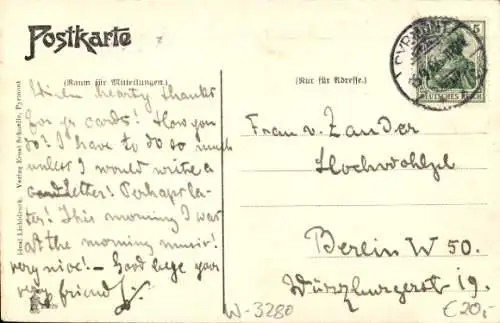 Postkarte
(Raum für Mitteilungen.)
(Nur für Adresse.)
PYRMONT
5
DEUTSCHES REICH
With hearty thanks
for yr cards! How you
do? I have to do so much
unless I would write a
letter! Perhaps la-
ter! This morning I was
at the morning music!
very nice! — Good bye your
very friend
Frau v. Zander
Hochwohlge
Berlin W 50.
Würzburgerst 19.
Ideal Lichtdruck. Verlag Ernst Schnelle, Pyrmont
W-3280
€20,-